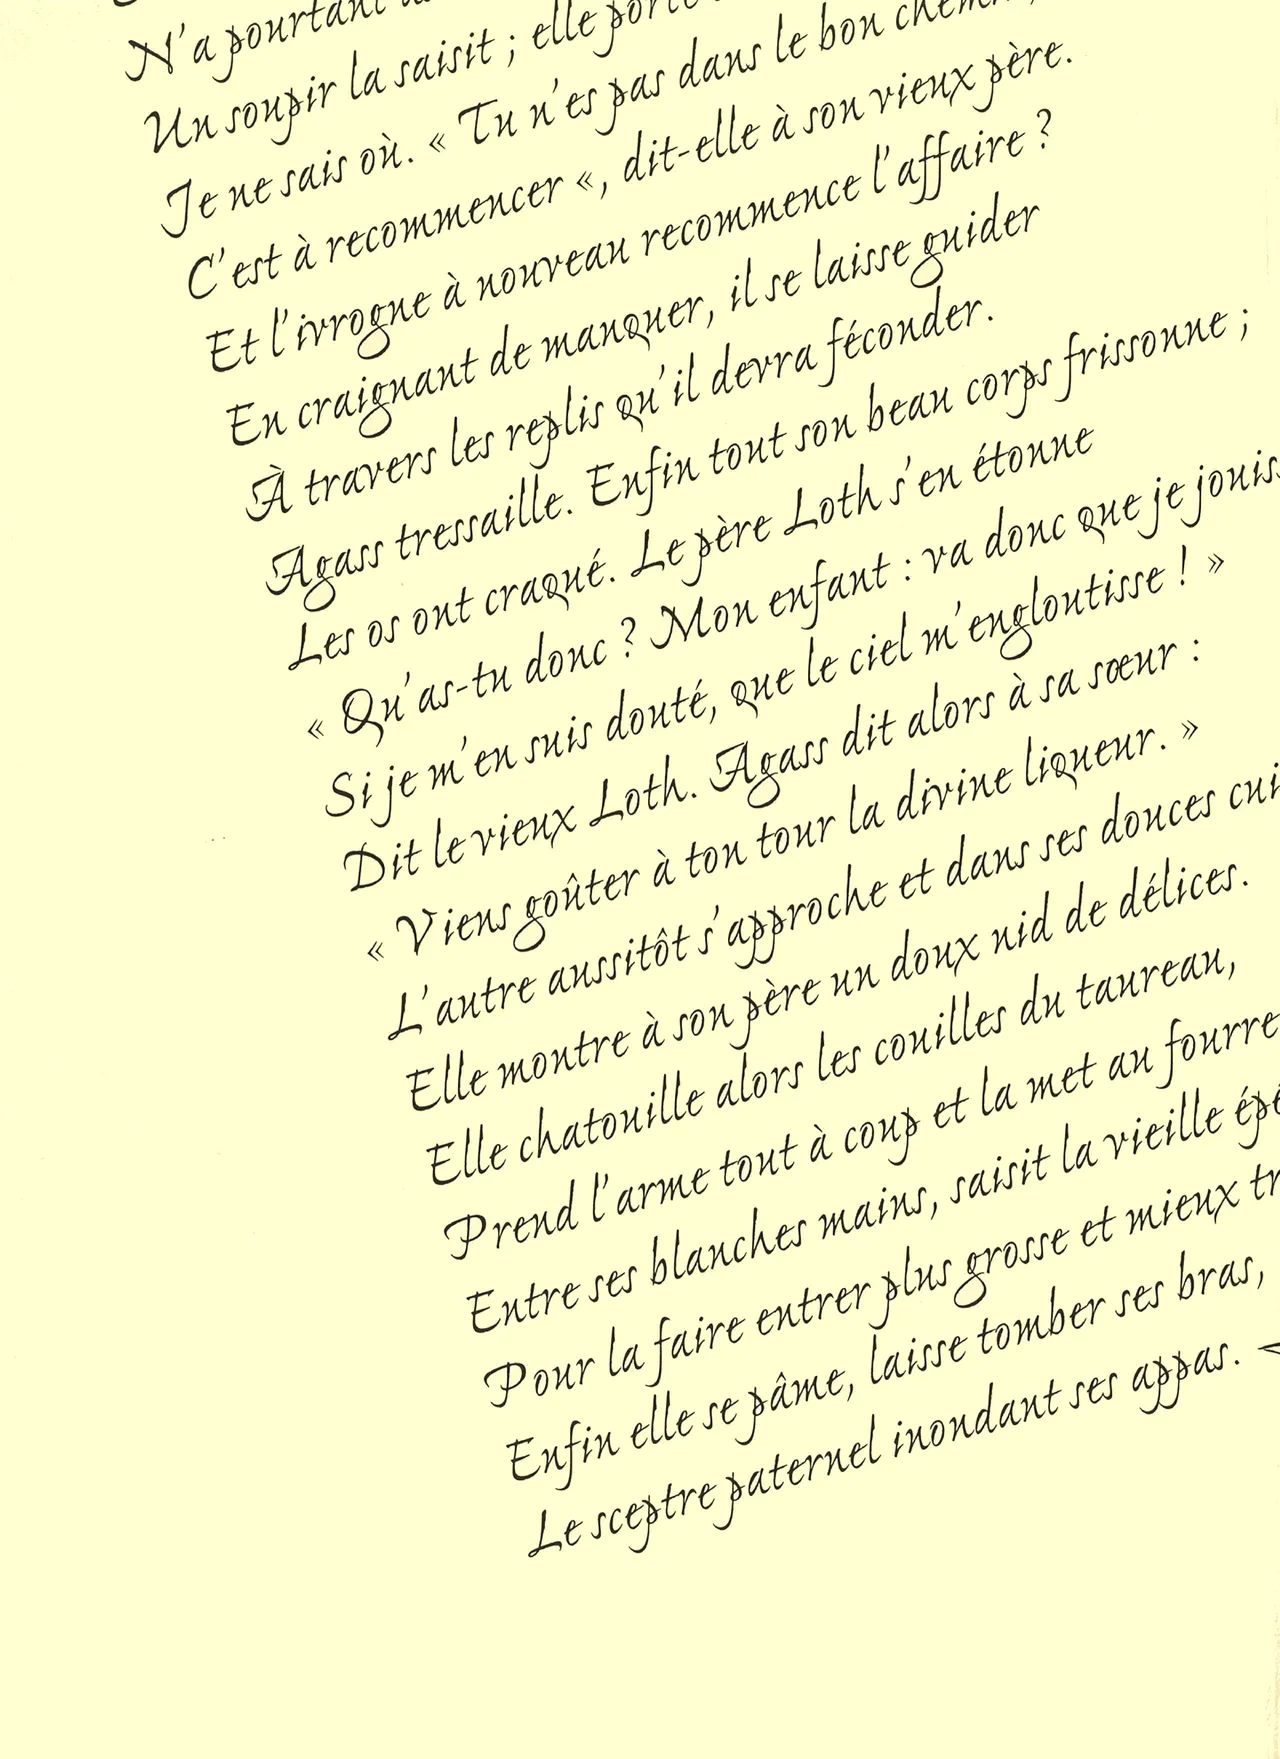 N'a pourtant
Un soupir la saisit ; elle porte
Je ne sais où. « Tu n'es pas dans le bon
C'est à recommencer «, dit-elle à son vieux père.
Et l'ivrogne à nouveau recommence l'affaire ?
En craignant de manquer, il se laisse guider
À travers les replis qu'il devra féconder.
Agass tressaille. Enfin tout son beau corps frissonne ;
Les os ont craqué. Le père Loth s'en étonne
« Qu'as-tu donc ? Mon enfant : va donc que je
Si je m'en suis douté, que le ciel m'engloutisse ! »
Dit le vieux Loth. Agass dit alors à sa sœur :
« Viens goûter à ton tour la divine liqueur. »
L'autre aussitôt s'approche et dans ses douces
Elle montre à son père un doux nid de délices.
Elle chatouille alors les couilles du taureau,
Prend l'arme tout à coup et la met au
Entre ses blanches mains, saisit la vieille
Pour la faire entrer plus grosse et mieux
Enfin elle se pâme, laisse tomber ses bras,
Le sceptre paternel inondant ses appas.